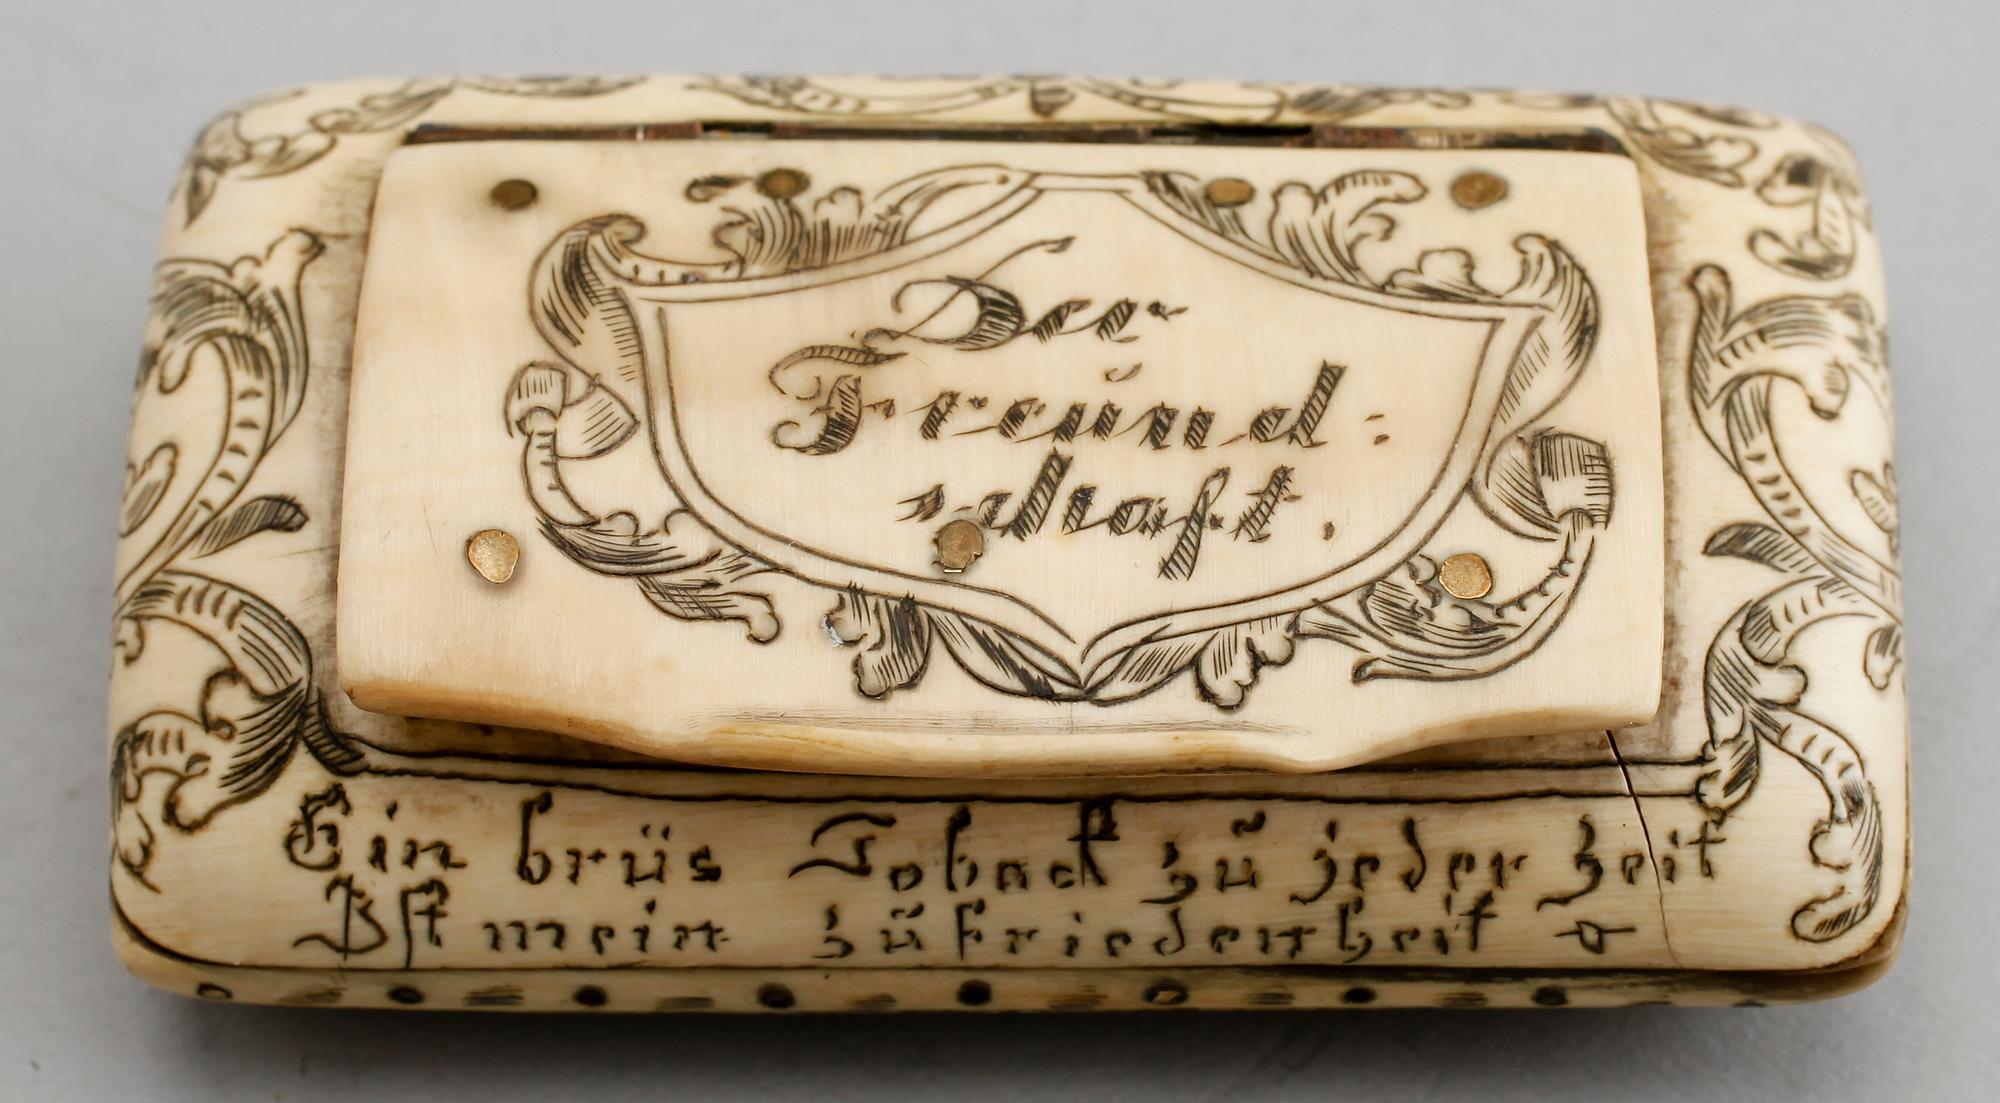 Der
Freünd:
schaft.
Ein brüs Toback zü jeder Zeit
Ist mein züfriedenheit